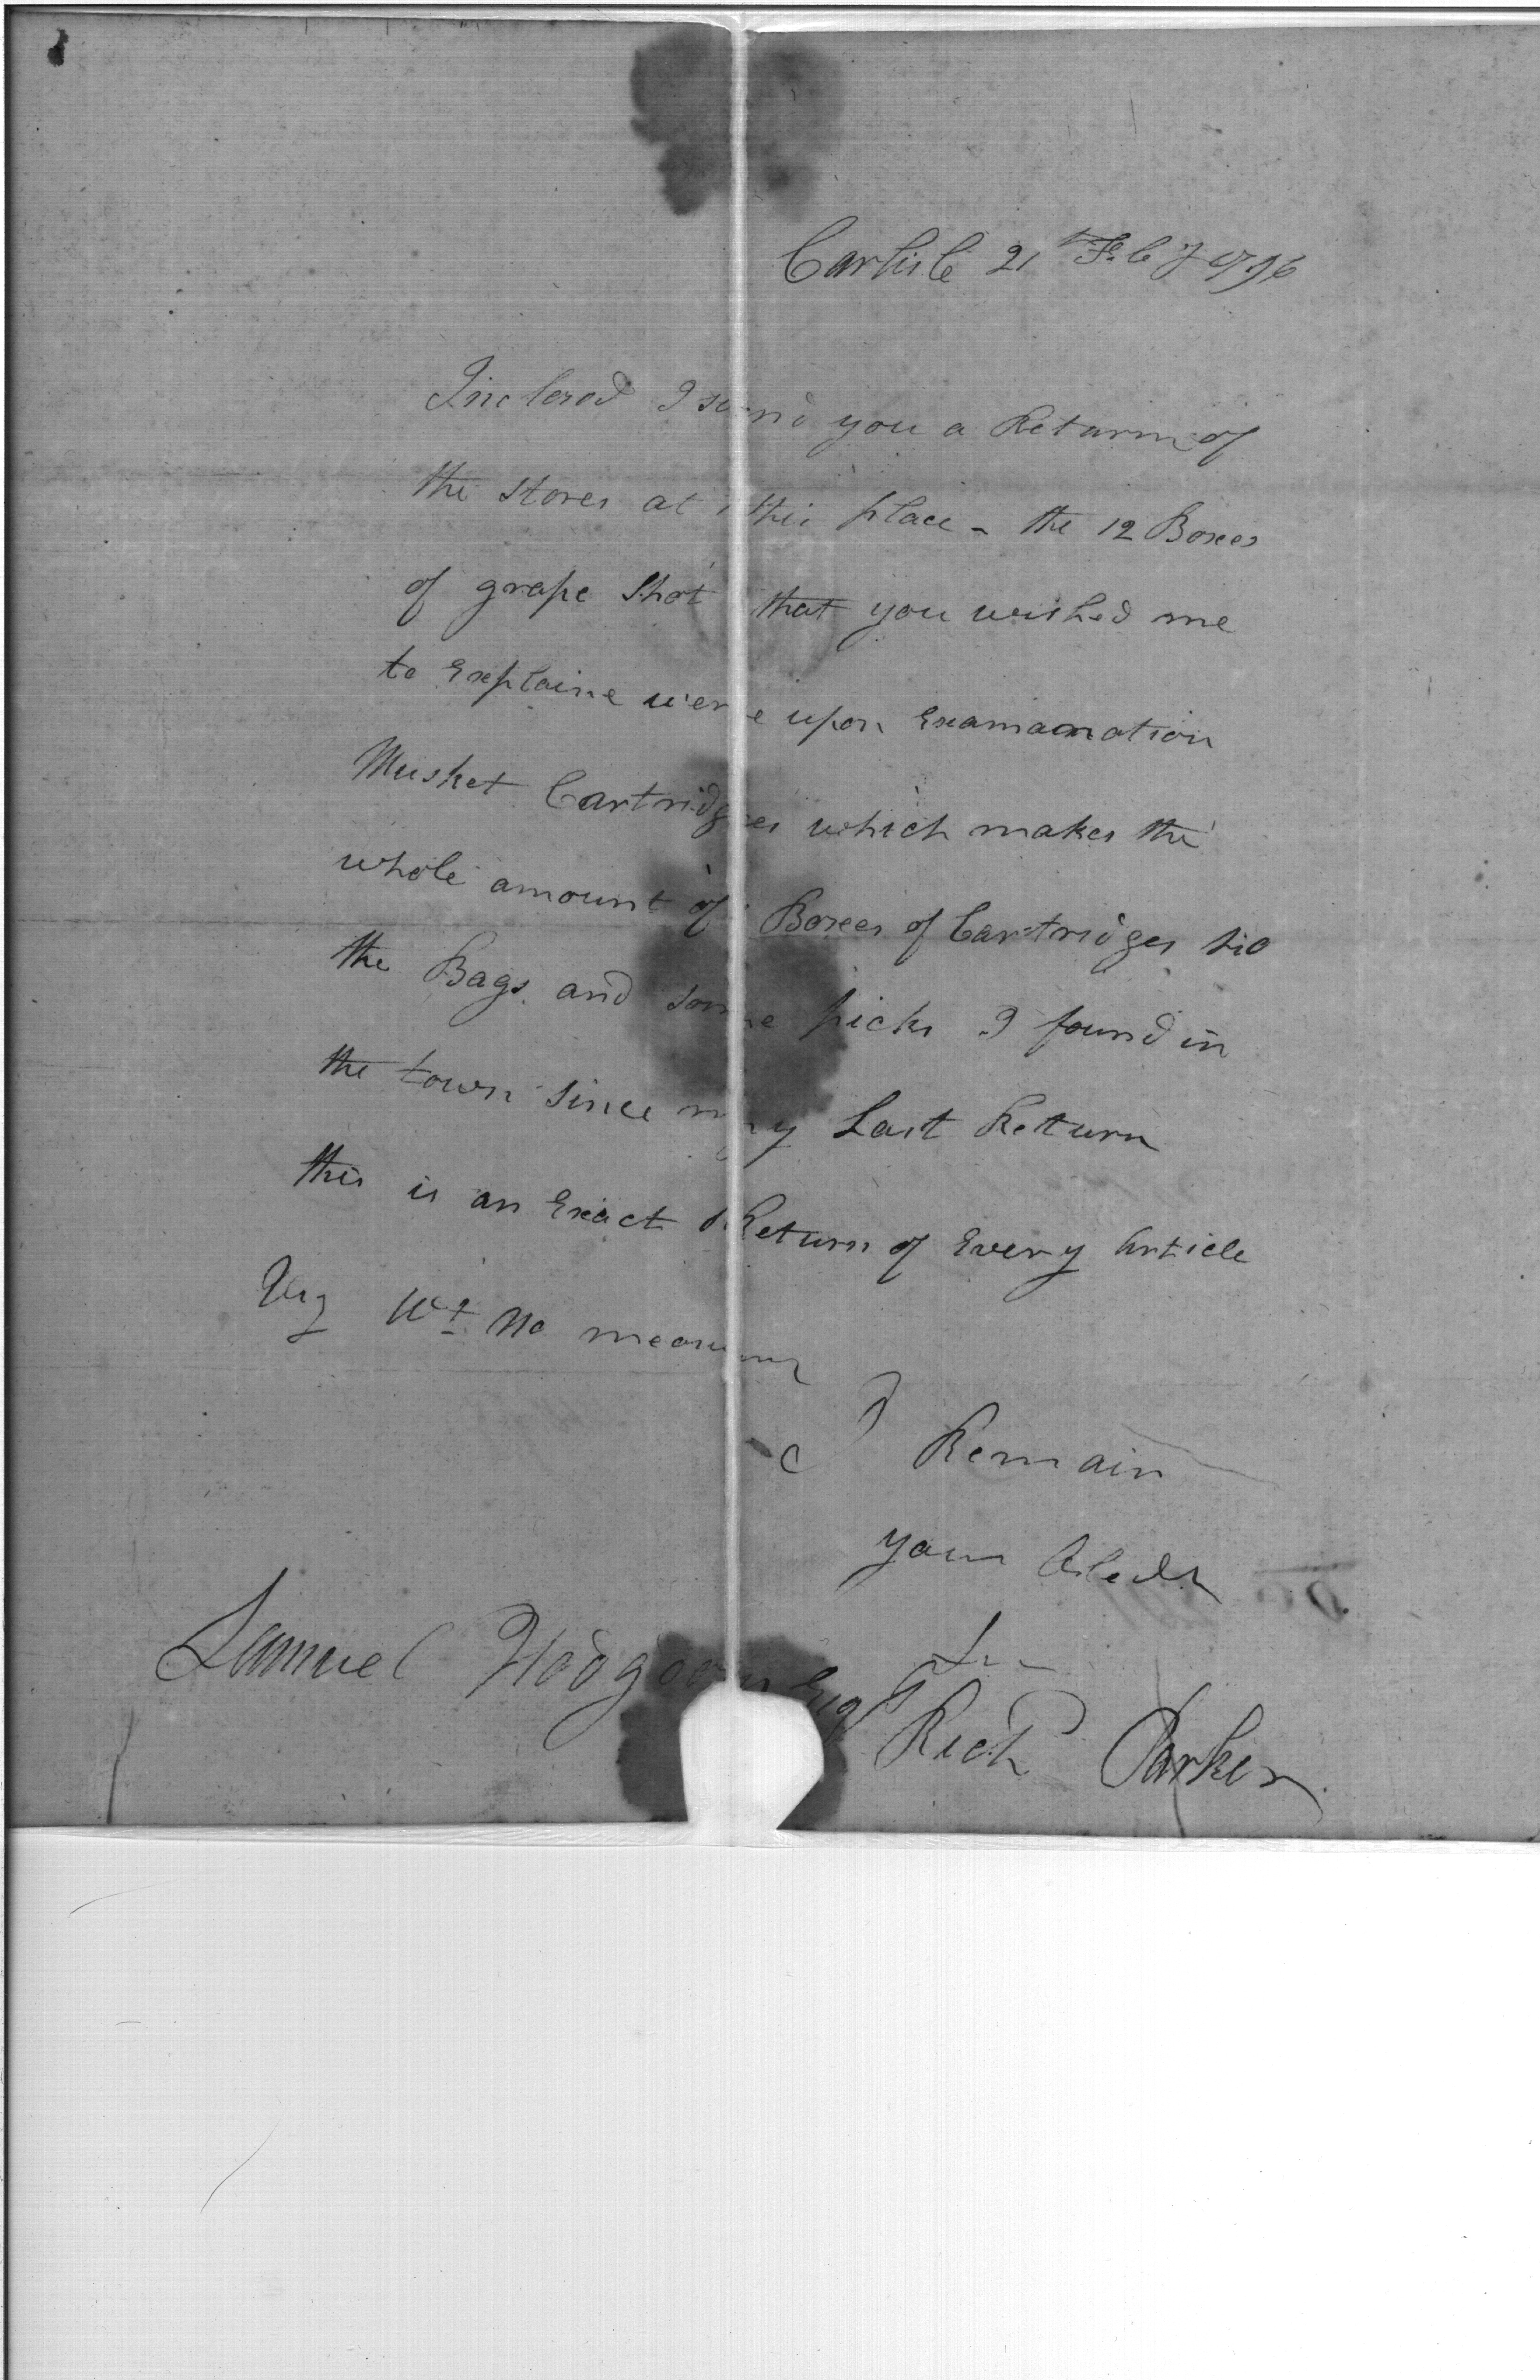 Carlisle 21st Feby 1796
Inclosed I send you a Return of
the stores at this place - the 12 Boxes
of grape Shot that you wished me
to Explaine were upon Examanation
Musket Cartridges which makes the
whole amount of Boxes of Cartridges
the Bags and some picks I found in
the town since my Last Return
this is an Exact Return of Every Article
Viz Wt No measure
I Remain
your Obedt
Samuel Hodgdon Esqr
Richd Parker